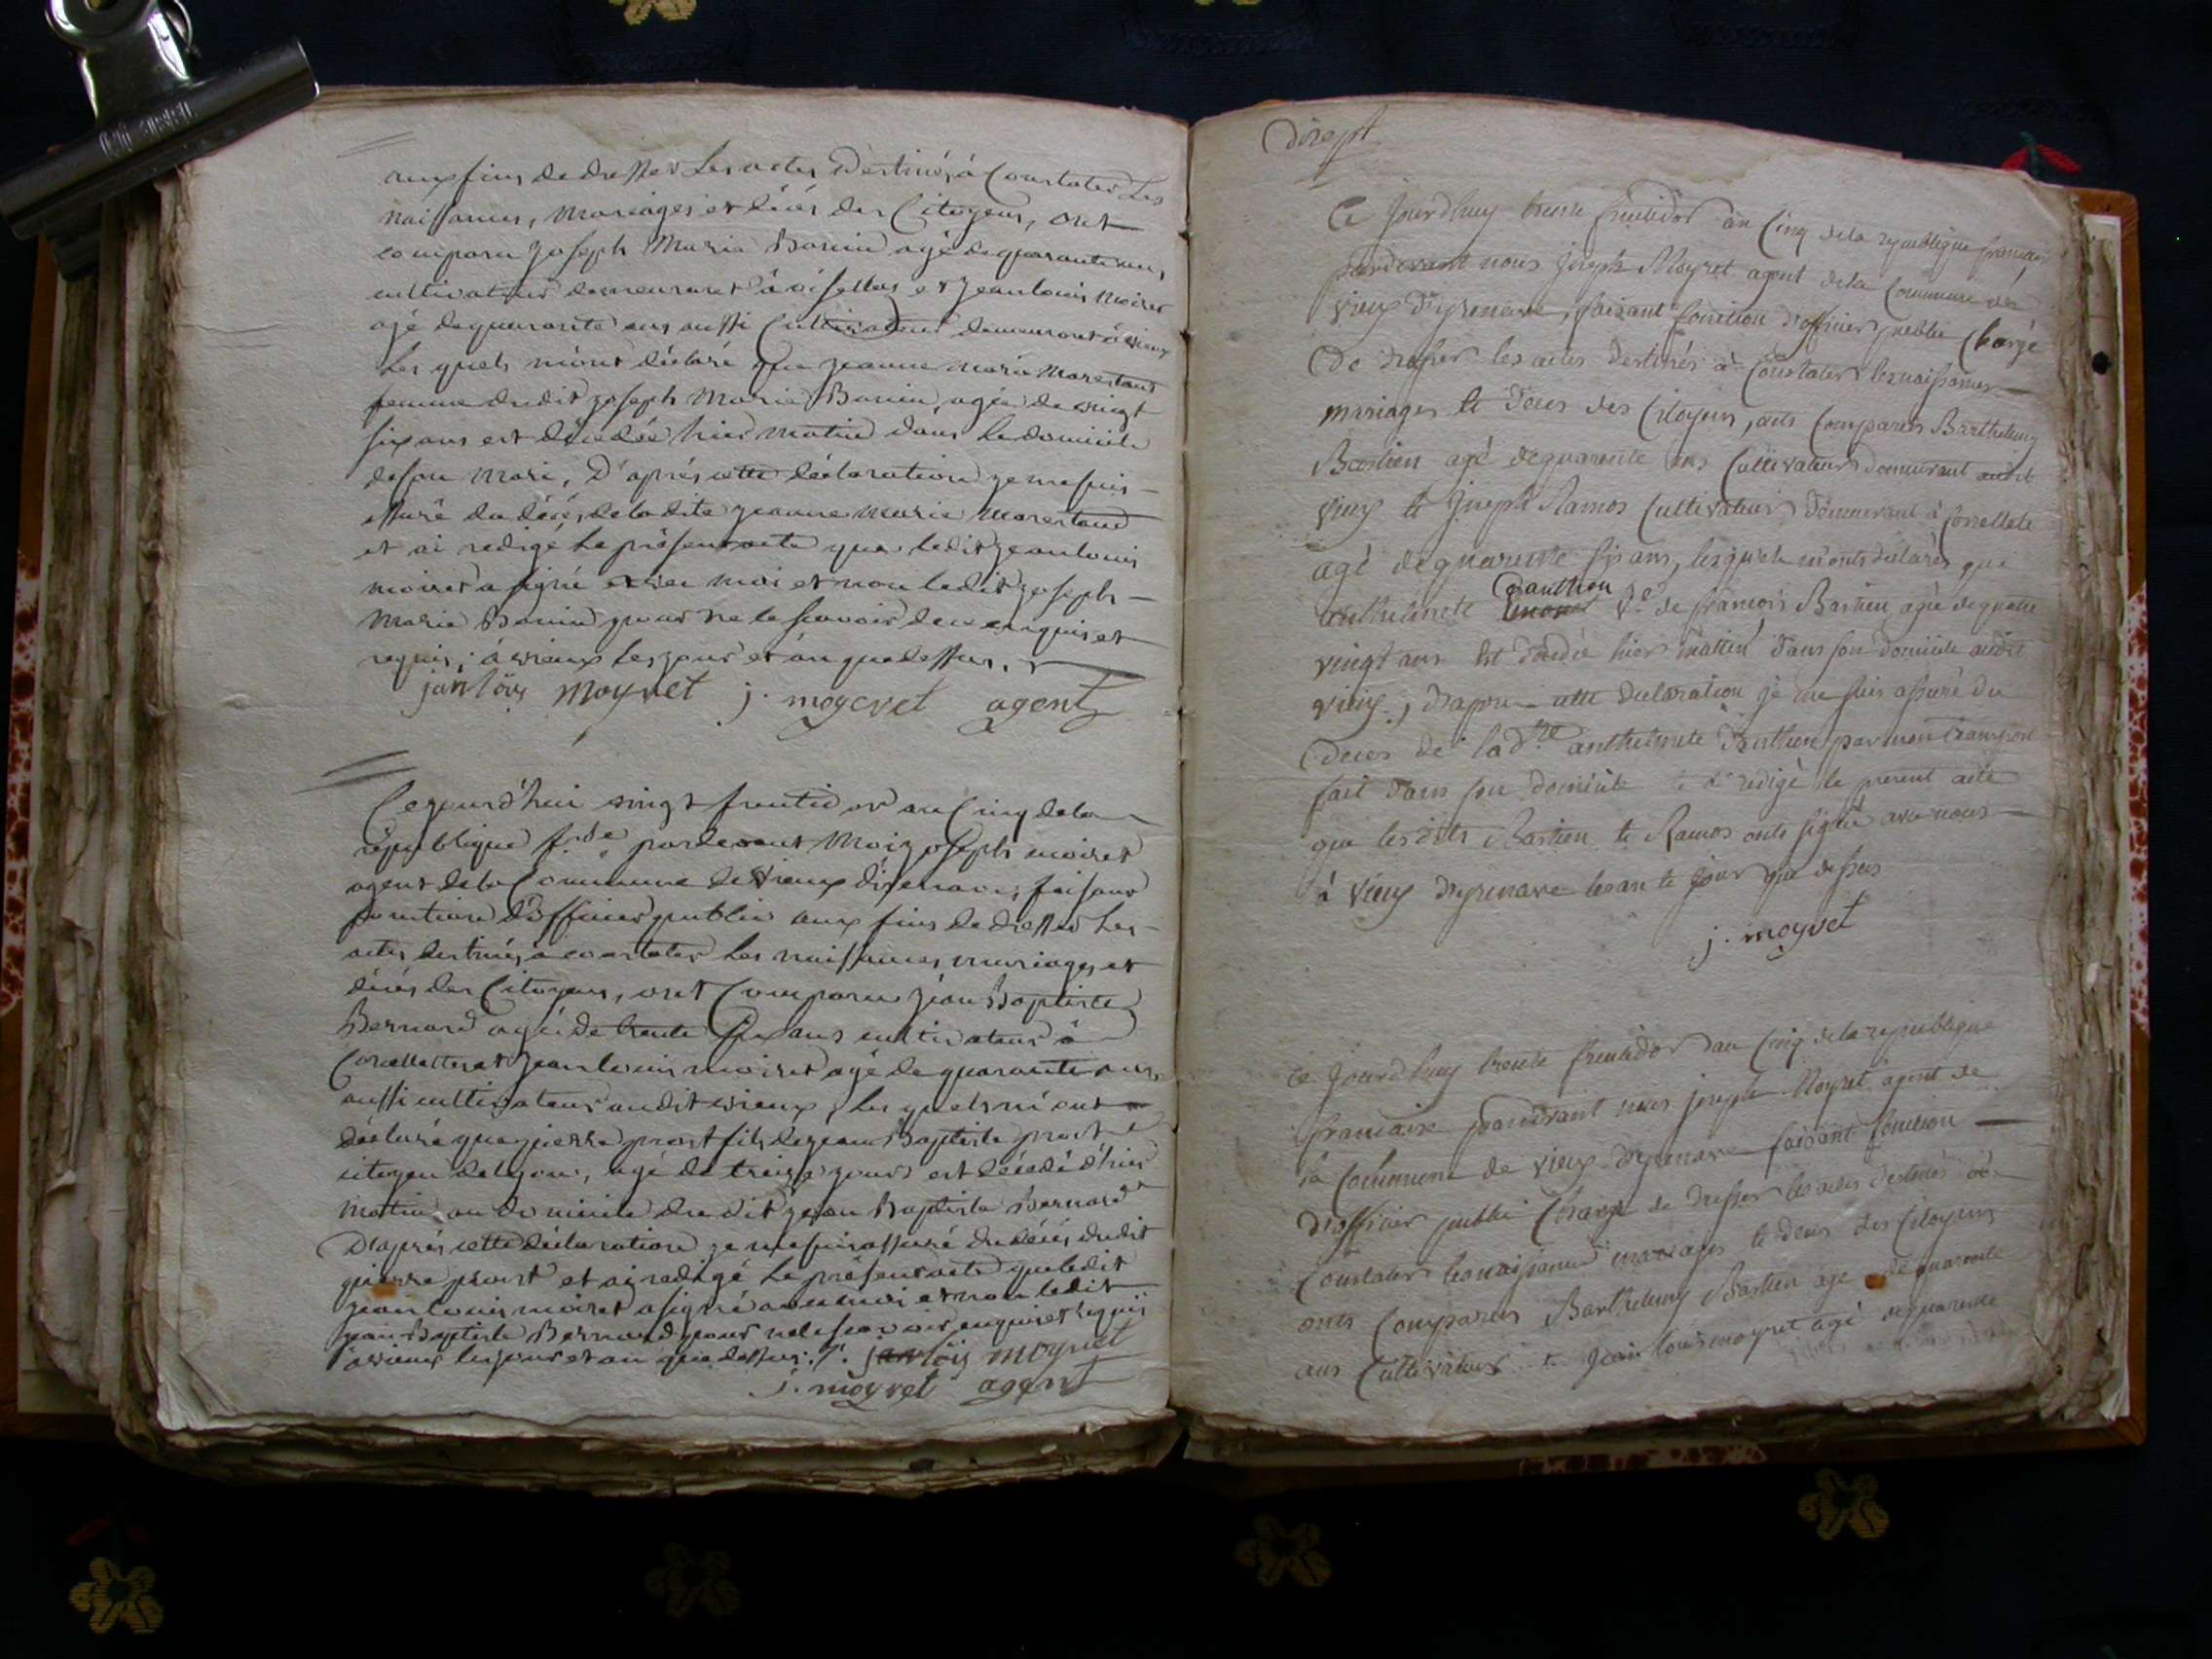 aux fins de dresser les actes destinés à Constater les
naissances, mariages et décés des Citoyens, ont
comparu joseph Marie Bonin agé de quarante ans,
cultivateur demeurant à et jean louis moiret
agé de quarante ans aussi Cultivateur demeurant à vieux
les quels m'ont déclaré que jeanne marie
femme dudit joseph Marie Bonin, agée de vingt
six ans est décédée hier matin dans le domicile
de son mari, D'aprés cette déclaration je me suis
assuré du décés de la dite jeanne marie
et ai redigé le présent acte que ledit jean louis
moiret a signé avec moi et non ledit joseph
Marie Bonin pour ne le scavoir de ce enquis et
requis; à vieux les jour et an que dessus.
janloüis moyret j. moyret agent
Cejourd'hui vingt fructidor an Cinq de la
république par devant Moi joseph moiret
agent de la Commune de Vieux d'isenave, faisant
fonction d'officier public aux fins de dresser les
actes destinés à constater les naissances mariages et
décés des Citoyens, ont Comparu jéan Baptiste
Bernard agé de trente six ans cultivateur à
et jean louis moiret agé de quarante ans,
aussi cultivateur audit vieux, les quels m'ont
déclaré que pierre prost fils de jean Baptiste prost
citoyen de lyon, agé de treize jours est décédé d'hier
matin au domicile du dit jean Baptiste Bernard
D'aprés cette déclaration je me suis assuré du décés dudit
pierre prost et ai redigé le présent acte que ledit
jean louis moiret a signé avec moi et non ledit
jean Baptiste Bernard pour ne le scavoir enquis et requis
à vieux les jour et an que dessus. janloüis moyret
j. moyret agent
Dixsept
Ce Jourdhuy trente fructidor an Cinq de la republique francaise
pardevant nous Joseph Moyret agent de la Commune de
vieux d'izenave, faisant fonction d'officier public Chargé
De dresser les actes destinés à Constater les naissances
mariages et deces des Citoyens, onts Comparus Barthelemy
Bastien agé de quarente ans Cultivateur demeurant audit
vieux et Joseph Ramos Cultivateur demeurant à
agé de quarente six ans, lesquels m'onts déclarés que
anthelmete Danthon Ve. de francois Bastien agée de quatre
vingt ans est décédé hier matin dans son domicile audit
vieux; d'apres cette declaration je me suis assuré du
deces de lad.te anthelmete Danthon par mon transport
fait dans son domicile et ai redigé le present acte
que les dits Bastien et Ramos onts signé avec nous
à Vieux dizenave les an et jour que dessus
j. moyret
Ce Jourdhuy trente fructidor an Cinq de la republique
francaise pardevant nous joseph Moyret agent de
la Commune de vieux d'izenave faisant fonction
d'officier public Chargé de dresser les actes destinés à
Constater les naissances mariages et deces des Citoyens
onts Comparus Barthelemy Bastien agé de quarente
ans Cultivateur et Jean louis moyret agé de quarente